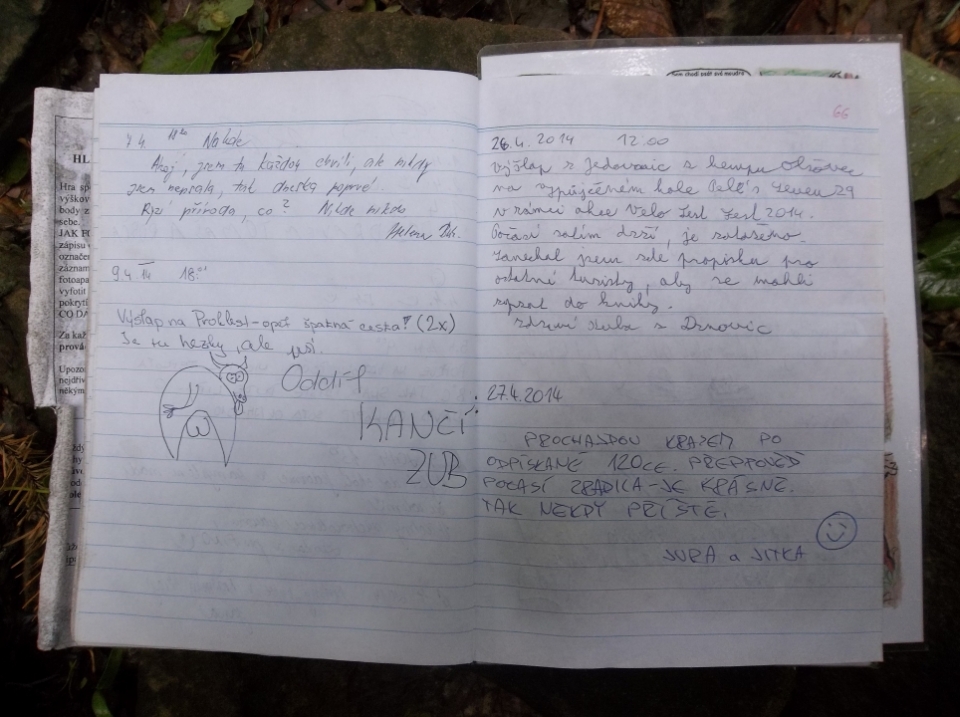 HL
Hra sp
výškov
body z
sebe.
JAK FO
zápisu
označe
záznam
fotoapa
vyfotit
pokrytí
CO DĚ
Za kaž
prová
Upozo
nejdřív
někým
Ahoj, jsem tu každou chvíli, ale nikdy
jsem nepsala, tak dneska poprvé.
Ryzí příroda, co? Nikde nikdo
Helena
9.4. 14 18:
Výšlap na Proklest - opět špatná cesta! (2x)
Je tu hezky, ale prší.
Oddíl
KANČÍ
ZUB
66
26.4.2014 12.00
Výšlap z Jedovnic z kempu Olšovec
na vypůjčeném kole Pell's 29
v rámci akce Velo Test Fest 2014.
Počasí zatím drží, je zataženo.
Zanechal jsem zde propisku pro
ostatní turisty, aby se mohli
zapsat do knihy.
zdraví Kuba z Drnovic
27.4.2014
PROCHAJDOU KRAZEM PO
ODPÍSKANÉ 120CE. PŘEDPOVĚĎ
POČASÍ ZRADILA - JE KRÁSNĚ.
TAK NĚKDY PŘÍŠTĚ.
JURA a JITKA